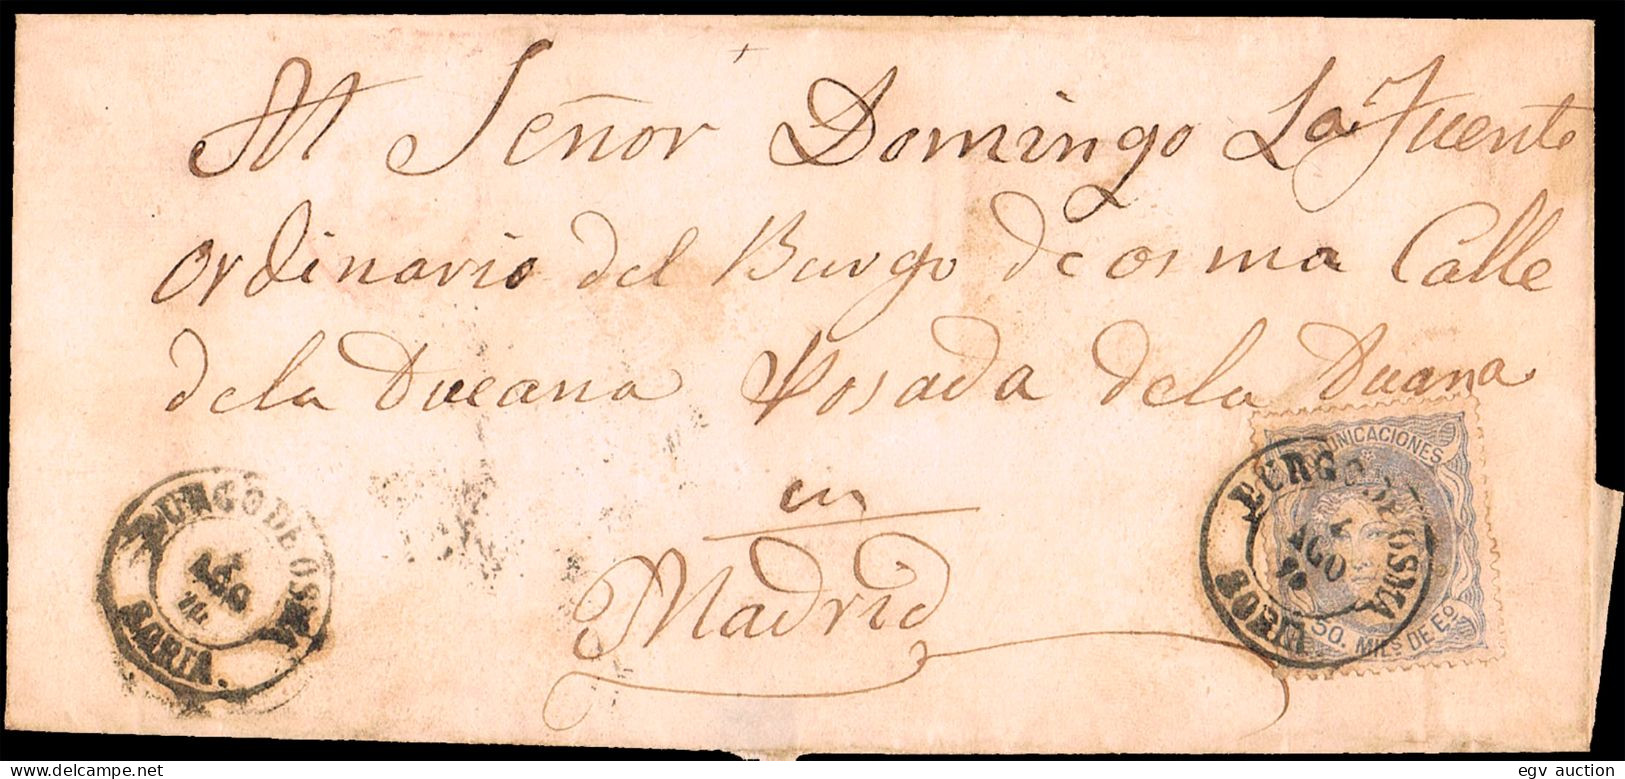 Al Señor Domingo La Fuente
Ordinario del Burgo de osma Calle
dela Dueana Posada dela Duana
en
Madrid
BURGO DE OSMA
SORIA.
COMUNICACIONES
50. MILS DE EO
BURGO DE OSMA
AGO
SORIA
www.delcampe.net
egv auction